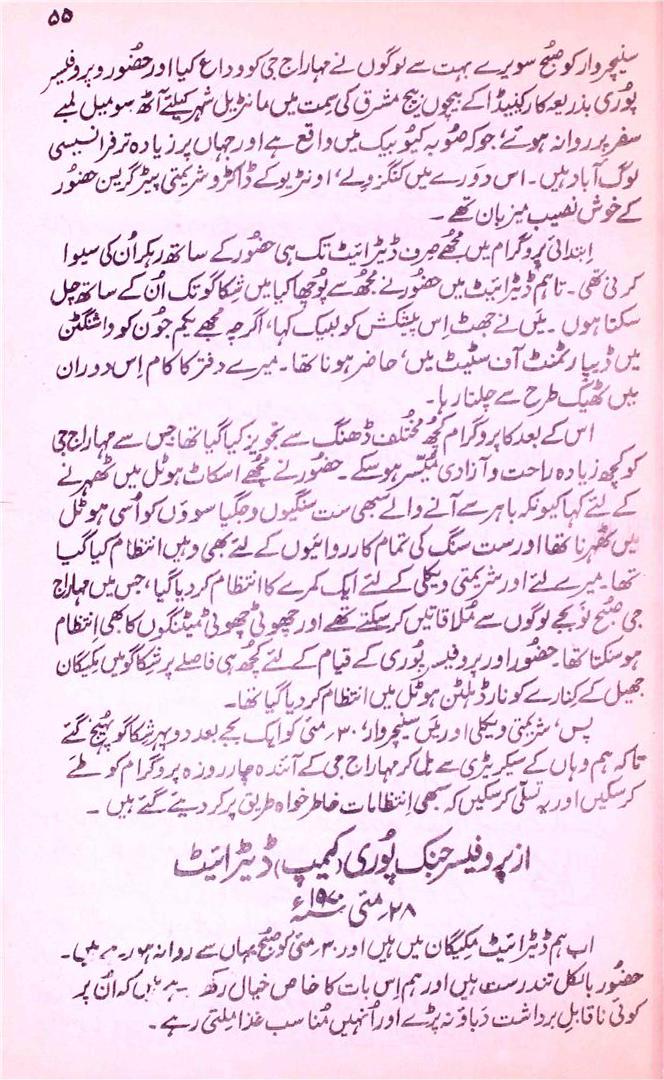 ۵۵
سنیچروار کو صبح سویرے بہت سے لوگوں نے مہاراج جی کو وداع کیا اور حضور و پروفیسر
پوری بذریعہ کار کینیڈا کے بیچوں بیچ مشرق کی سمت میں مانٹریل شہر کیلئے آٹھ سو میل لمبے
سفر پر روانہ ہوئے، جو کہ صوبہ کیوبیک میں واقع ہے اور جہاں پر زیادہ تر فرانسیسی
لوگ آباد ہیں۔ اس دورے میں کنگزولے، اونٹریو کے ڈاکٹر و شریمتی پیٹر گرین حضور
کے خوش نصیب میزبان تھے۔
ابتدائی پروگرام میں مجھے صرف ڈیٹرائیٹ تک ہی حضور کے ساتھ رہ کر اُن کی سیوا
کرنی تھی۔ تاہم ڈیٹرائیٹ میں حضور نے مجھ سے پوچھا کیا میں شکاگو تک اُن کے ساتھ چل
سکتا ہوں۔ میں نے جھٹ اِس پیشکش کو لبیک کہا، اگرچہ مجھے یکم جون کو واشنگٹن
میں ڈیپارٹمنٹ آف سٹیٹ میں، حاضر ہونا تھا۔ میرے دفتر کا کام اِس دوران
میں ٹھیک طرح سے چلتا رہا۔
اس کے بعد کا پروگرام کچھ مختلف ڈھنگ سے تجویز کیا گیا تھا جس سے مہاراج جی
کو کچھ زیادہ راحت و آزادی میسّر ہو سکے۔ حضور نے مجھے اسکاٹ ہوٹل میں ٹھہرنے
کے لئے کہا کیونکہ باہر سے آنے والے سبھی ست سنگیوں و جگیاسوؤں کو اُسی ہوٹل
میں ٹھہرنا تھا اور ست سنگ کی تمام کارروائیوں کے لئے بھی وہیں انتظام کیا گیا
تھا۔ میرے لئے اور شریمتی ویکلی کے لئے ایک کمرے کا انتظام کر دیا گیا، جس میں مہاراج
جی صبح نو بجے لوگوں سے مُلاقاتیں کر سکتے تھے اور چھوٹی چھوٹی میٹنگوں کا بھی اِنتظام
ہو سکتا تھا۔ حضور اور پروفیسر پوری کے قیام کے لئے کچھ ہی فاصلے پر شکاگو میں مِکیگان
جھیل کے کِنارے کونارڈ ہلٹن ہوٹل میں انتظام کر دیا گیا تھا۔
پس، شریمتی ویکلی اور میں سنیچروار، ۳۰؍ مئی کو ایک بجے بعد دوپہر شکاگو پہنچ گئے
تاکہ ہم وہاں کے سیکریٹری سے مل کر مہاراج جی کے آئندہ چار روزہ پروگرام کو طے
کر سکیں اور یہ تسلّی کر سکیں کہ سبھی اِنتظامات خاطر خواہ طریق پر کر دیئے گئے ہیں۔
از پروفیسر جنک پُوری (کیمپ) ڈیٹرائیٹ
۲۸؍ مئی ۱۹۷۰ء
اب ہم ڈیٹرائیٹ مکیگان میں ہیں اور ۳۰؍ مئی کو صبح یہاں سے روانہ ہو رہے ہیں۔
حضُور بالکل تندرست ہیں اور ہم اِس بات کا خاص خیال رکھ رہے ہیں کہ اُن پر
کوئی ناقابلِ برداشت دباؤ نہ پڑے اور اُنہیں مُناسب غذا ملتی رہے۔